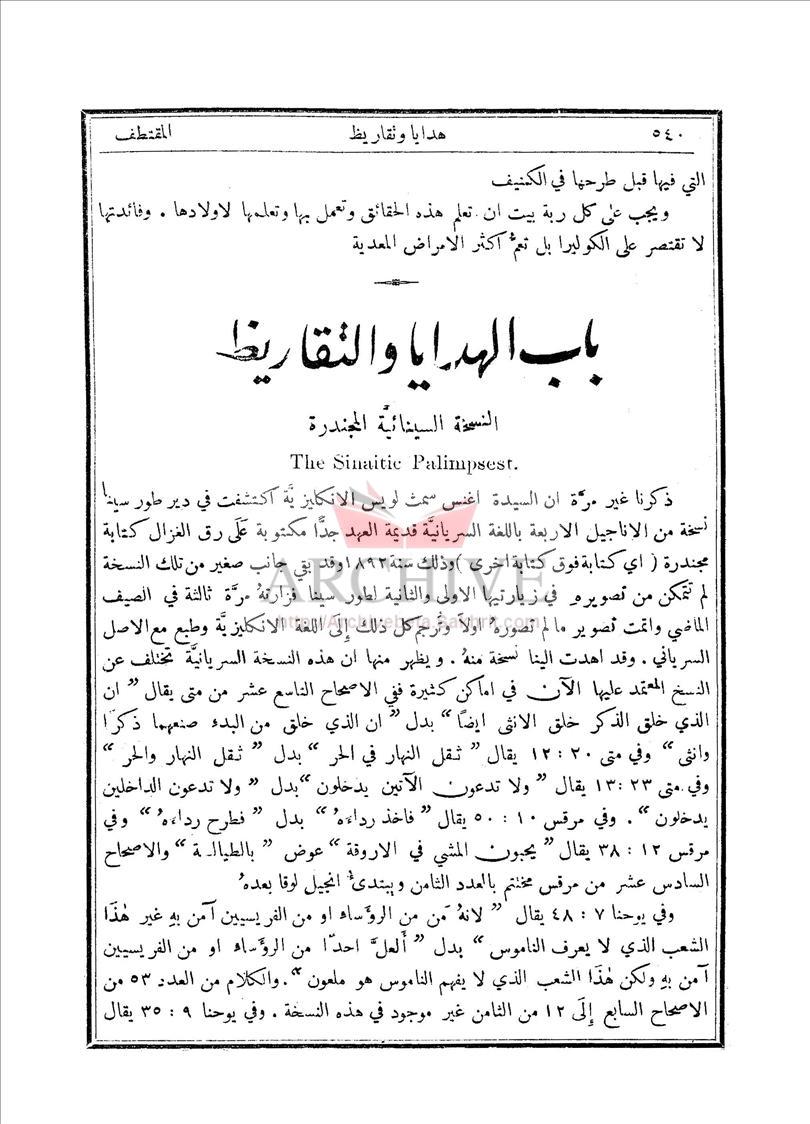 ٥٤٠ هدايا وتقاريظ المقتطف
التي فيها قبل طرحها في الكنيف
ويجب على كل ربة بيت ان تعلم هذه الحقائق وتعمل بها وتعلمها لاولادها . وفائدتها
لا تقتصر على الكوليرا بل تعمُّ اكثر الامراض المعدية
باب الهدايا والتقاريظ
النسخة السينائيَّة المجندرة
The Sinaitic Palimpsest.
ذكرنا غير مرَّة ان السيدة اغنس سمث لويس الانكليزيَّة اكتشفت في دير طور سينا
نسخة من الاناجيل الاربعة باللغة السريانيَّة قديمة العهد جدًّا مكتوبة على رق الغزال كتابة
مجندرة ( اي كتابة فوق كتابة اخرى ) وذلك سنة ١٨٩٢ وقد بقي جانب صغير من تلك النسخة
لم تتمكن من تصويره في زيارتيها الاولى والثانية لطور سينا فزارتهُ مرَّة ثالثة في الصيف
الماضي واتمت تصوير ما لم تصورهُ اولاً وترجم كل ذلك إلى اللغة الانكليزيَّة وطبع مع الاصل
السرياني . وقد اهدت الينا نسخة منهُ . ويظهر منها ان هذه النسخة السريانيَّة تختلف عن
النسخ المعتمد عليها الآن في اماكن كثيرة ففي الاصحاح التاسع عشر من متى يقال " ان
الذي خلق الذكر خلق الانثى ايضًا " بدل " ان الذي خلق من البدء صنعهما ذكرًا
وانثى " وفي متى ٢٠ : ١٢ يقال " ثقل النهار في الحر " بدل " ثقل النهار والحر "
وفي متى ٢٣ : ١٣ يقال " ولا تدعون الآتين يدخلون " بدل " ولا تدعون الداخلين
يدخلون " . وفي مرقس ١٠ : ٥٠ يقال " فاخذ رداءهُ " بدل " فطرح رداءهُ " وفي
مرقس ١٢ : ٣٨ يقال " يحبون المشي في الاروقة " عوض " بالطيالسة " والاصحاح
السادس عشر من مرقس مختتم بالعدد الثامن ويبتدئ انجيل لوقا بعدهُ
وفي يوحنا ٧ : ٤٨ يقال " لانهُ مَن من الرؤساء او من الفريسيين آمن بهِ غير هٰذا
الشعب الذي لا يعرف الناموس " بدل " ألعلَّ احدًا من الرؤساء او من الفريسيين
آمن بهِ ولكن هٰذا الشعب الذي لا يفهم الناموس هو ملعون " . والكلام من العدد ٥٣ من
الاصحاح السابع إلى ١٢ من الثامن غير موجود في هذه النسخة . وفي يوحنا ٩ : ٣٥ يقال
ARCHIVE
http://Archivebeta.Sakhrit.com